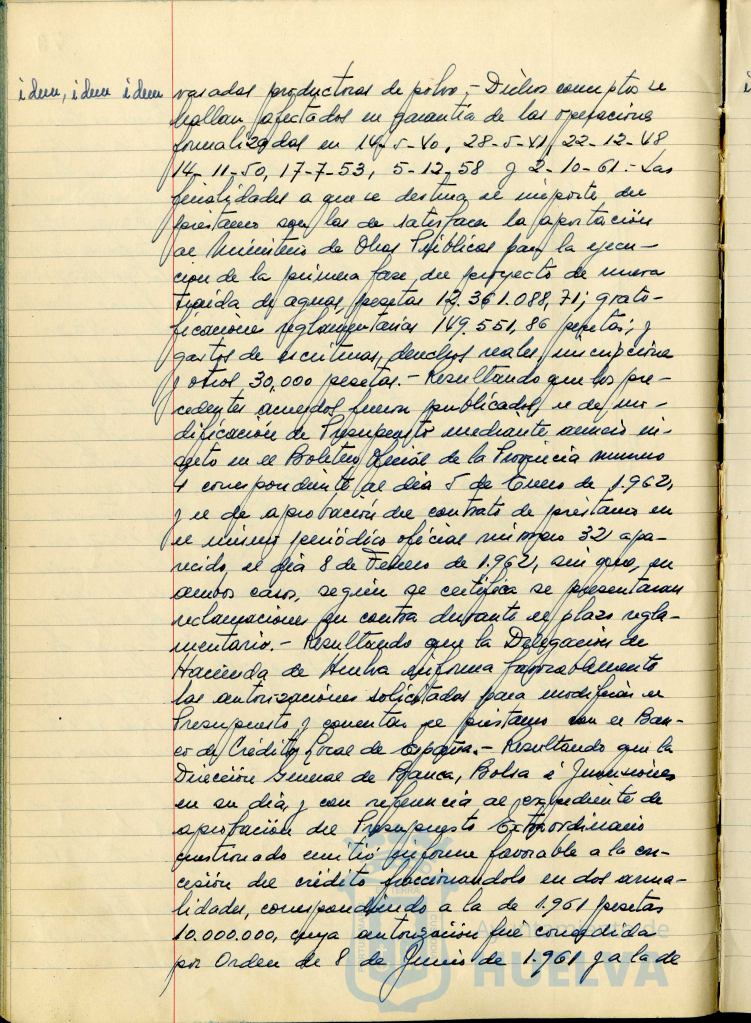 idem, idem idem
vasados productoras de polvo.- Dichos conceptos se
hallan afectados en garantía de las operaciones
formalizadas en 14-5-40, 28-5-41, 22-12-48
14-11-50, 17-7-53, 5-12-58 y 2-10-61.- Las
finalidades a que se destina el importe del
préstamo son las de satisfacer la aportación
al Ministerio de Obras Públicas para la ejecu-
ción de la primera fase del proyecto de nueva
traída de aguas, pesetas 12.361.088,71; grati-
ficaciones reglamentarias 149.551,86 pesetas; y
gastos de escrituras, derechos reales, inscripciones
y otros 30,000 pesetas.- Resultando que los pre-
cedentes acuerdos fueron publicados, el de mo-
dificación de Presupuesto mediante anuncio in-
serto en el Boletín Oficial de la Provincia número
4 correspondiente al día 5 de Enero de 1.962,
y el de aprobación del contrato de préstamo en
el mismo periódico oficial número 32 apa-
recido, el día 8 de Febrero de 1.962, sin que, en
ambos casos, según se certifica se presentaran
reclamaciones en contra durante el plazo regla-
mentario.- Resultando que la Delegación de
Hacienda de Huelva informa favorablemente
las autorizaciones solicitadas para modificar el
Presupuesto y concertar el préstamo con el Ban-
co de Crédito Local de España.- Resultando que la
Dirección General de Banca, Bolsa é Inversiones
en su día, y con referencia al expediente de
aprobación del Presupuesto Extraordinario
cuestionado emitió informe favorable a la con-
cesión del crédito fraccionandolo en dos anua-
lidades, correspondiendo a la de 1.961 pesetas
10.000.000, cuya autorización fué concedida
por Orden de 8 de Junio de 1.961 y a la de
Ayuntamiento de
HUELVA